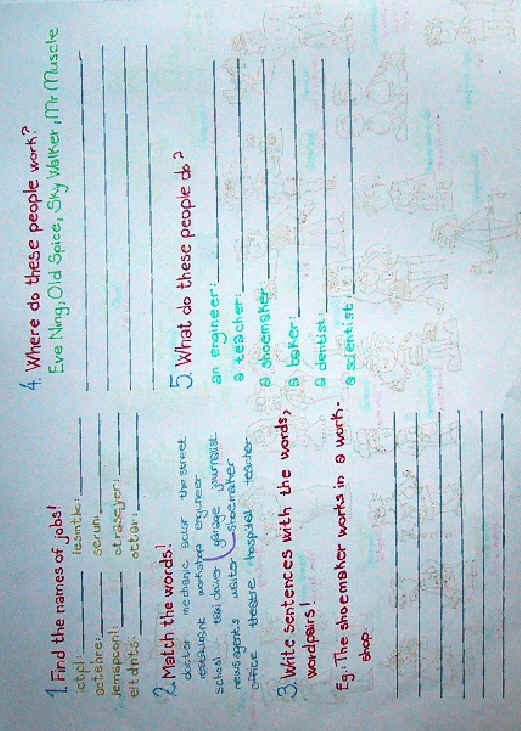 1. Find the names of jobs!
iotpl: lesmthc:
aetehrc: serun:
iemapconl: atresejyer:
eitdnts: octor:
2. Match the words!
doctor mechanic actor the street
restaurant workshop engineer
school taxi driver garage journalist
newsagent's waiter shoemaker
office theatre hospital teacher
3. Write sentences with the words,
wordpairs!
Eg.: The shoemaker works in a work-
shop.
4. Where do these people work?
Eve Ning, Old Spice, Sky Walker, Mr Muscle
5. What do these people do?
an engineer:
a teacher:
a shoemaker
a baker:
a dentist:
a scientist: